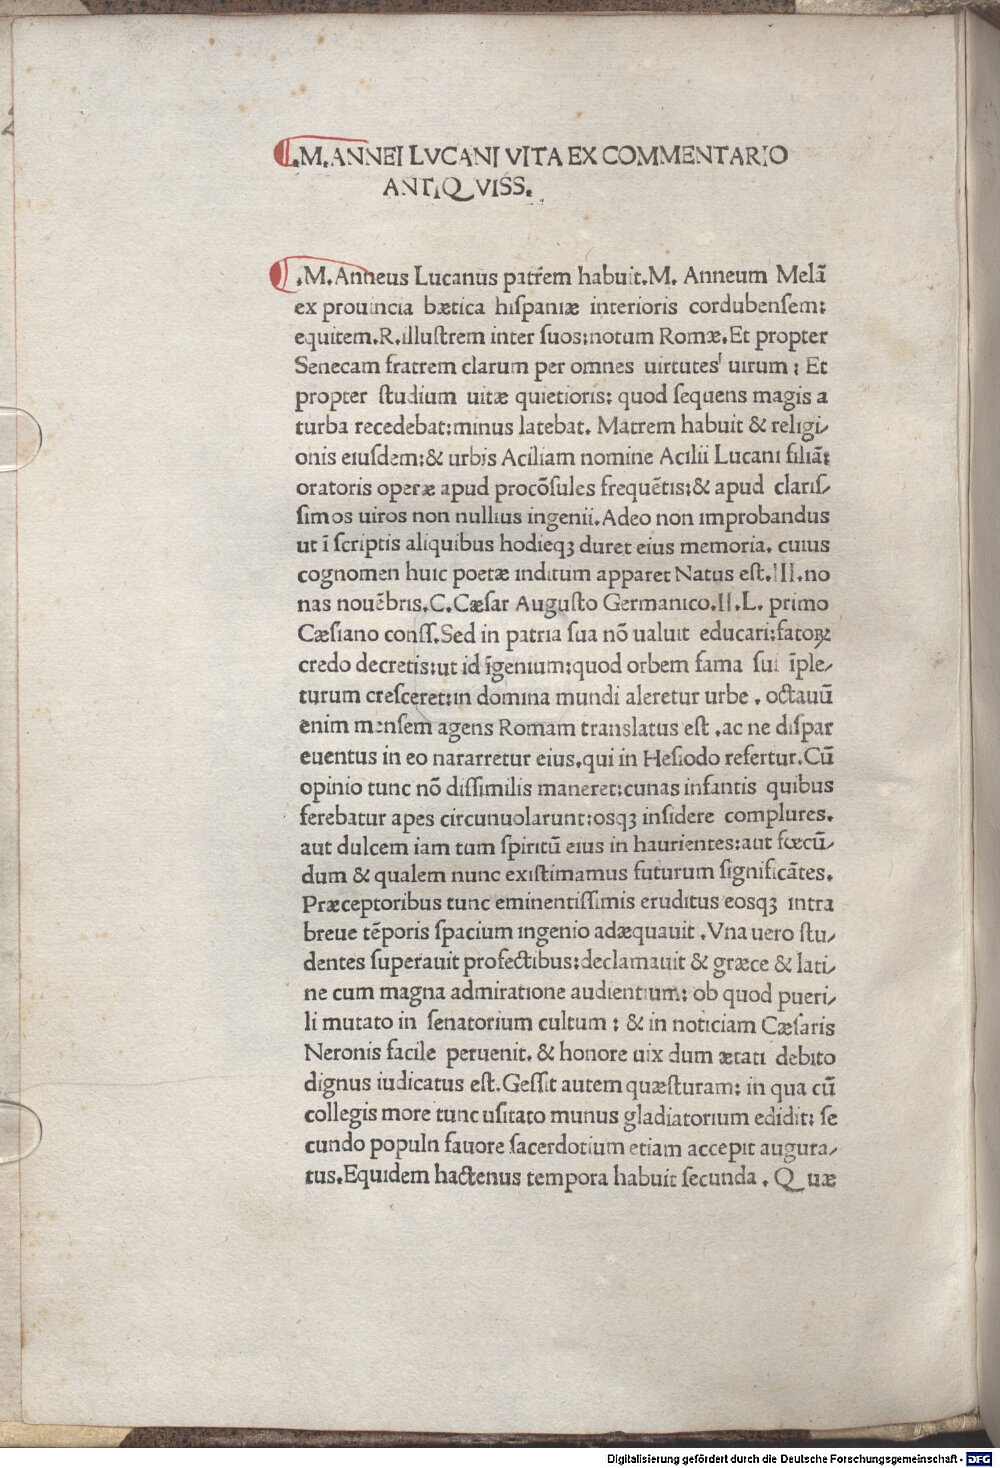 .M.ANNEI LVCANI VITA EX COMMENTARIO
ANTIQVISS.
.M.Anneus Lucanus patrẽm habuit.M. Anneum Melã
ex prouincia bætica hiſpaniæ interioris cordubenſem:
equitem.R.illuſtrem inter ſuos:notum Romæ.Et propter
Senecam fratrem clarum per omnes uirtutes uirum : Et
propter ſtudium uitæ quietioris: quod ſequens magis a
turba recedebat:minus latebat. Matrem habuit & religi/
onis eiuſdem:& urbis Aciliam nomine Acilii Lucani filiã:
oratoris operæ apud procõſules frequẽtis:& apud clariſ/
ſimos uiros non nullius ingenii.Adeo non improbandus
ut ĩ ſcriptis aliquibus hodieqꝫ duret eius memoria. cuius
cognomen huic poetæ inditum apparet Natus eſt.III.no
nas nouẽbris.C.Cæſar Auguſto Germanico.II.L. primo
Cæſiano conſſ.Sed in patria ſua nõ ualuit educari:fatoꝝ
credo decretis:ut id ĩgenium:quod orbem fama ſui ĩple/
turum creſceret:in domina mundi aleretur urbe . octauũ
enim menſem agens Romam translatus eſt .ac ne diſpar
euentus in eo nararretur eius.qui in Heſiodo refertur.Cũ
opinio tunc nõ diſſimilis maneret:cunas infantis quibus
ferebatur apes circunuolarunt:osqꝫ inſidere complures.
aut dulcem iam tum ſpiritũ eius in haurientes:aut fœcũ/
dum & qualem nunc exiſtimamus futurum ſignificãtes.
Præceptoribus tunc eminentiſſimis eruditus eosqꝫ intra
breue tẽporis ſpacium ingenio adæquauit .Vna uero ſtu/
dentes ſuperauit profectibus:declamauit & græce & lati/
ne cum magna admiratione audientium: ob quod pueri/
li mutato in ſenatorium cultum : & in noticiam Cæſaris
Neronis facile peruenit. & honore uix dum ætati debito
dignus iudicatus eſt.Geſſit autem quæſturam: in qua cũ
collegis more tunc uſitato munus gladiatorium edidit: ſe
cundo populn fauore ſacerdotium etiam accepit augura/
tus.Equidem hactenus tempora habuit ſecunda . Quæ
Digitalisierung gefördert durch die Deutsche Forschungsgemeinschaft - DFG